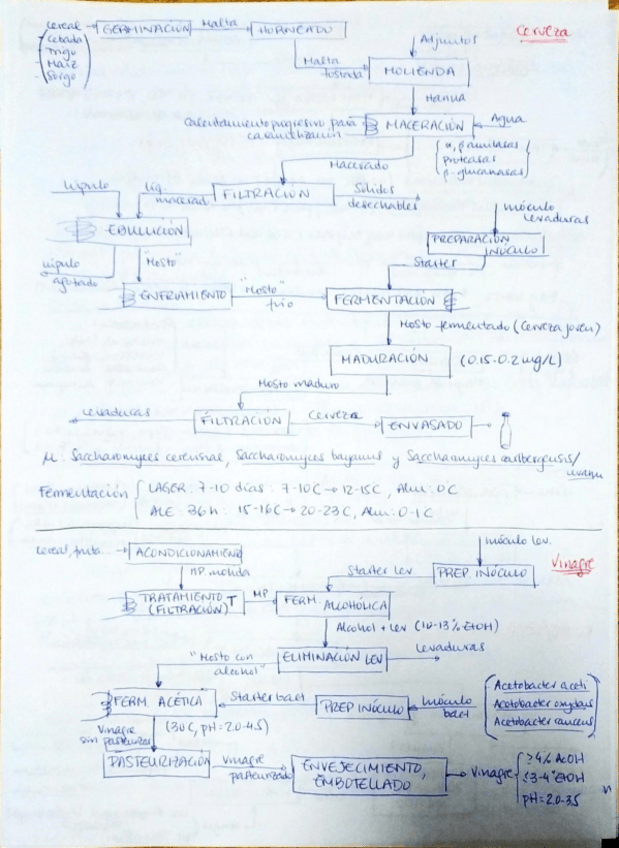 Cerveza
cereal
- Cebada
- Trigo
- Maíz
- Sorgo
GERMINACIÓN
Malta
HORNEADO
Malta
tostada
Adjuntos
MOLIENDA
Harina
Calentamiento progresivo para
caramelización
MACERACIÓN
Agua
α, β amilasas
proteasas
β-glucanasas
Macerado
FILTRACIÓN
Sólidos
desechables
Líq.
macerad.
Lúpulo
EBULLICIÓN
lúpulo
agotado
"Mosto"
ENFRIAMIENTO
"Mosto"
frío
inóculo
levaduras
PREPARACIÓN
INÓCULO
Starter
FERMENTACIÓN
Mosto fermentado (cerveza joven)
MADURACIÓN
(0.15-0.2 mg/L)
Mosto maduro
Levaduras
FILTRACIÓN
Cerveza
ENVASADO
M: Saccharomyces cerevisiae, Saccharomyces bayanus y Saccharomyces carlbergensis/
uvarum
Fermentación
LAGER: 7-10 días: 7-10C → 12-15C, Alm: 0°C
ALE 36h: 15-16C → 20-23C, Alm: 0-1C
Vinagre
cereal, fruta
ACONDICIONAMIENTO
MP. molida
TRATAMIENTO T
(FILTRACIÓN)
MP
inóculo lev.
PREP. INÓCULO
Starter lev.
FERM ALCOHÓLICA
Alcohol + lev (10-13% EtOH)
ELIMINACIÓN LEV
Levaduras
"Mosto con
alcohol"
FERM. ACÉTICA
Starter bact
PREP INÓCULO
Inóculo
bact
Acetobacter aceti
Acetobacter oxydans
Acetobacter rancens
(30C, pH=2.0-4.5)
Vinagre
sin pasteurizar
PASTEURIZACIÓN
Vinagre
pasteurizado
ENVEJECIMIENTO,
EMBOTELLADO
Vinagre
≥4% AcOH
≤3-4° EtOH
pH=2.0-3.5